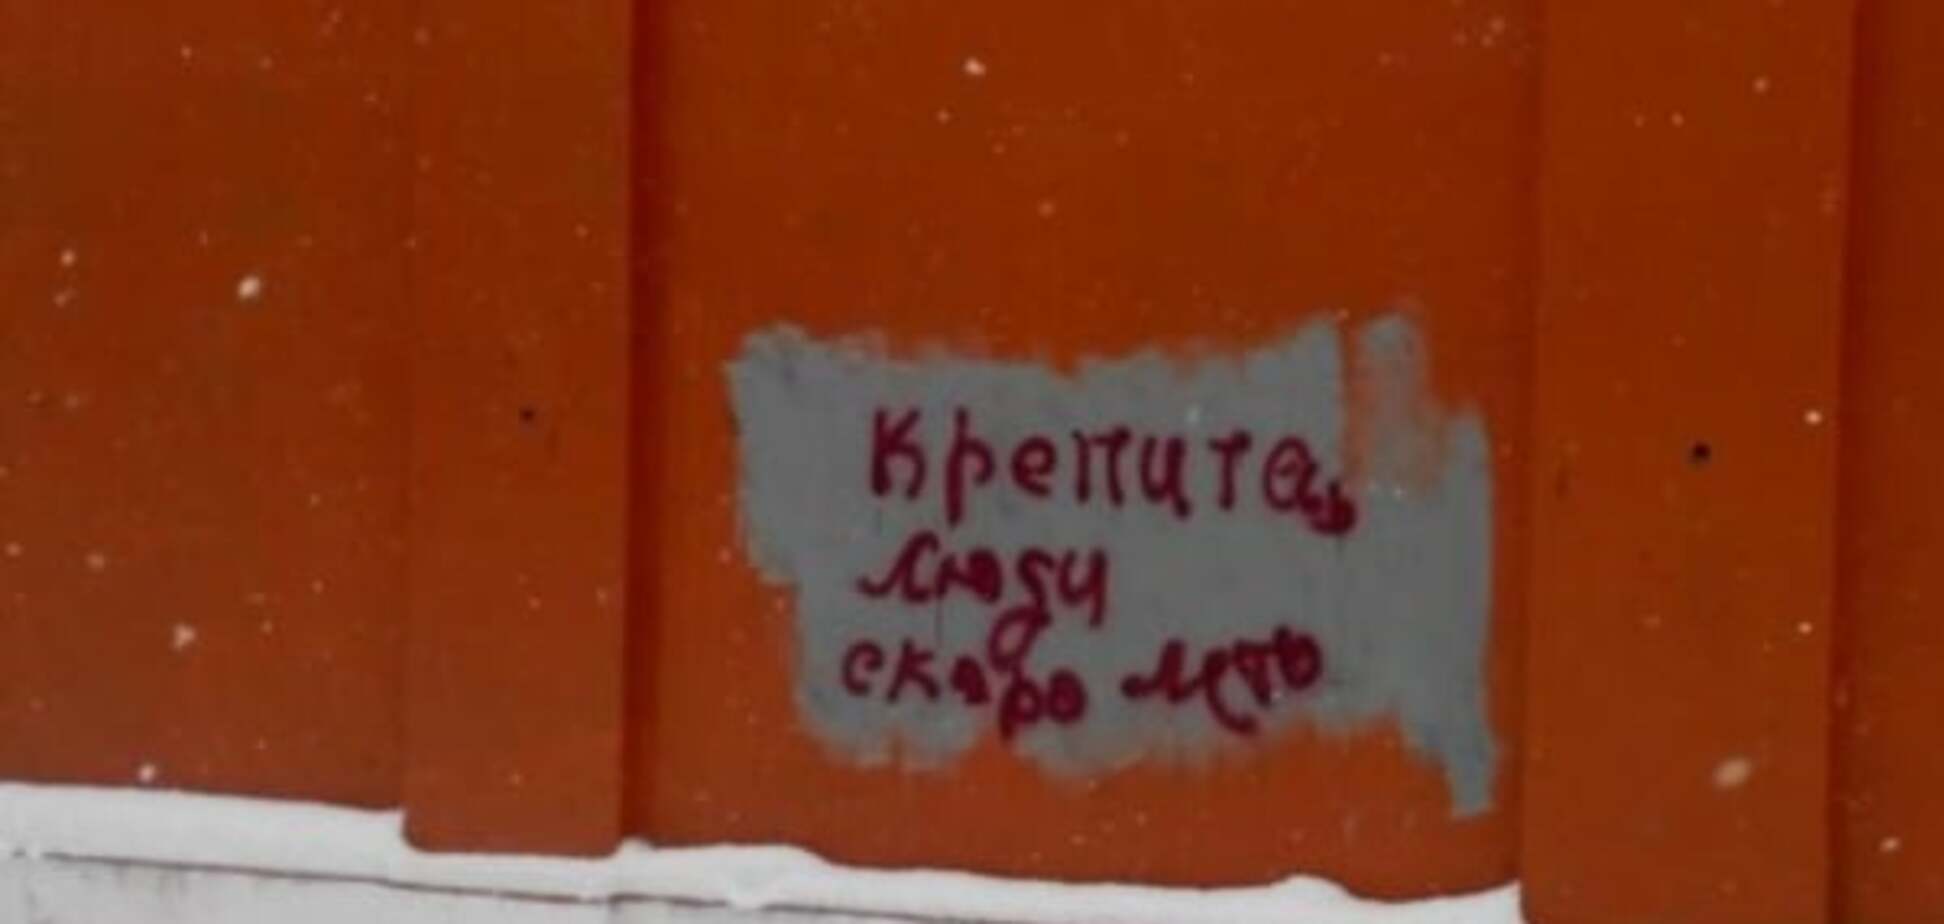 Крепитесь
люди
скоро лето